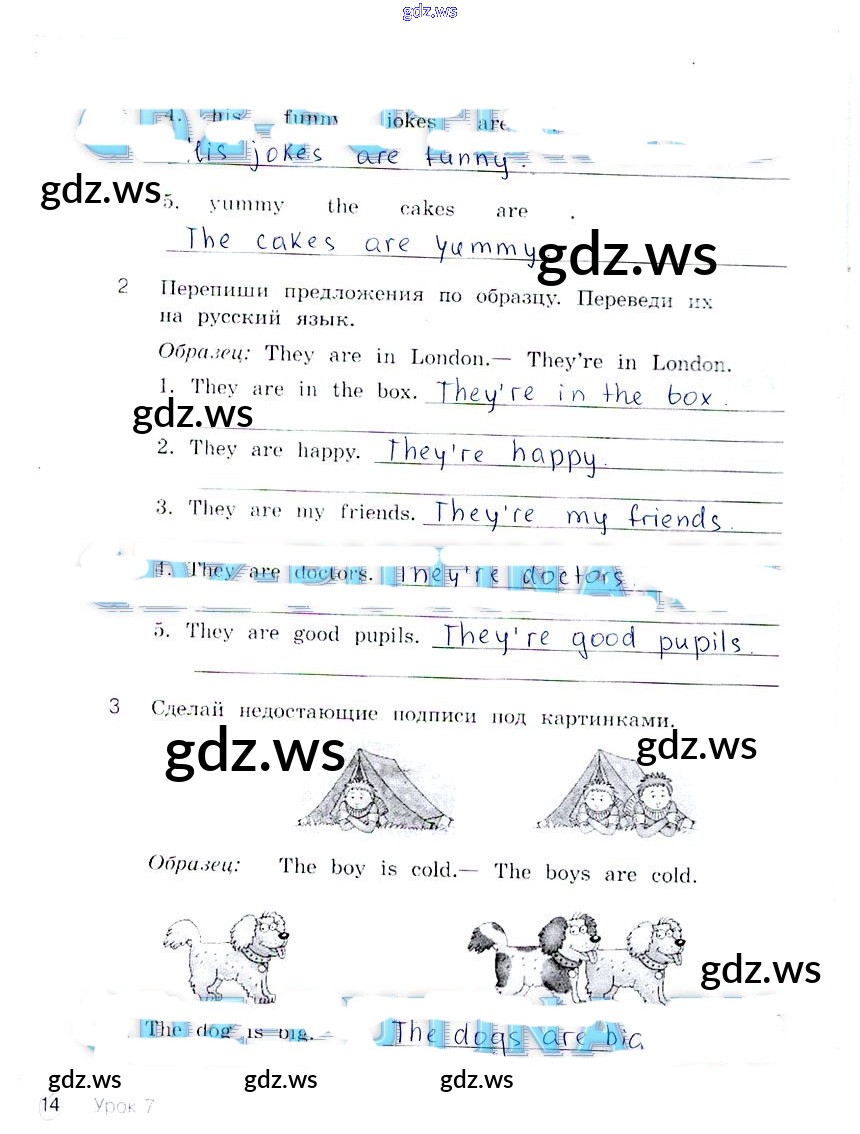 gdz.ws
4. his funny jokes are
His jokes are funny.
gdz.ws
5. yummy the cakes are .
The cakes are yummy
gdz.ws
2 Перепиши предложения по образцу. Переведи их
на русский язык.
Образец: They are in London.— They're in London.
1. They are in the box. They're in the box.
gdz.ws
2. They are happy. They're happy.
3. They are my friends. They're my friends.
4. They are doctors. They're doctors.
5. They are good pupils. They're good pupils.
3 Сделай недостающие подписи под картинками.
gdz.ws
gdz.ws
Образец: The boy is cold.— The boys are cold.
gdz.ws
The dog is big. The dogs are big
gdz.ws gdz.ws gdz.ws
14 Урок 7